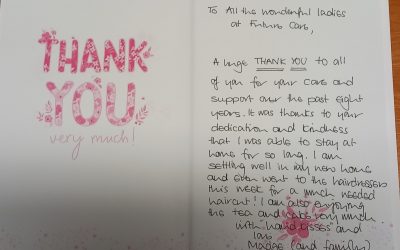 THANK
YOU
very much!
To All the wonderful ladies
at Future Care,
A huge THANK YOU to all
of you for your care and
support over the past eight
years. It was thanks to your
dedication and kindness
that I was able to stay at
home for so long. I am
settling well in my new home
and even went to the hairdressers
this week for a much needed
haircut! I am also enjoying
the tea and cake very much
with "hand kisses" and
Madge (and family)